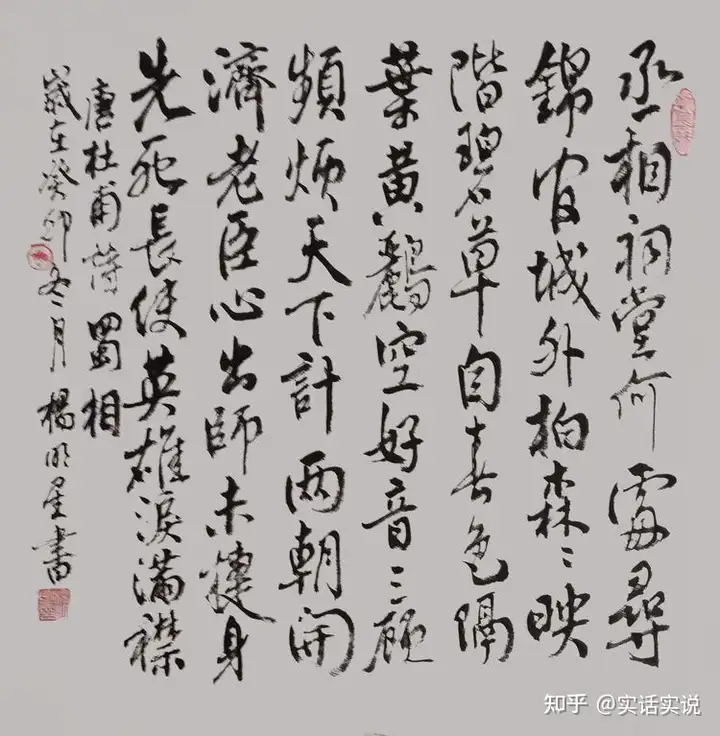 丞相祠堂何處尋
錦官城外柏森々映
階碧草自春色隔
葉黄鸝空好音三顧
頻煩天下計兩朝開
濟老臣心出師未捷身
先死長使英雄淚滿襟
唐杜甫詩蜀相
歲在癸卯冬月楊明星書
知乎 @实话实说